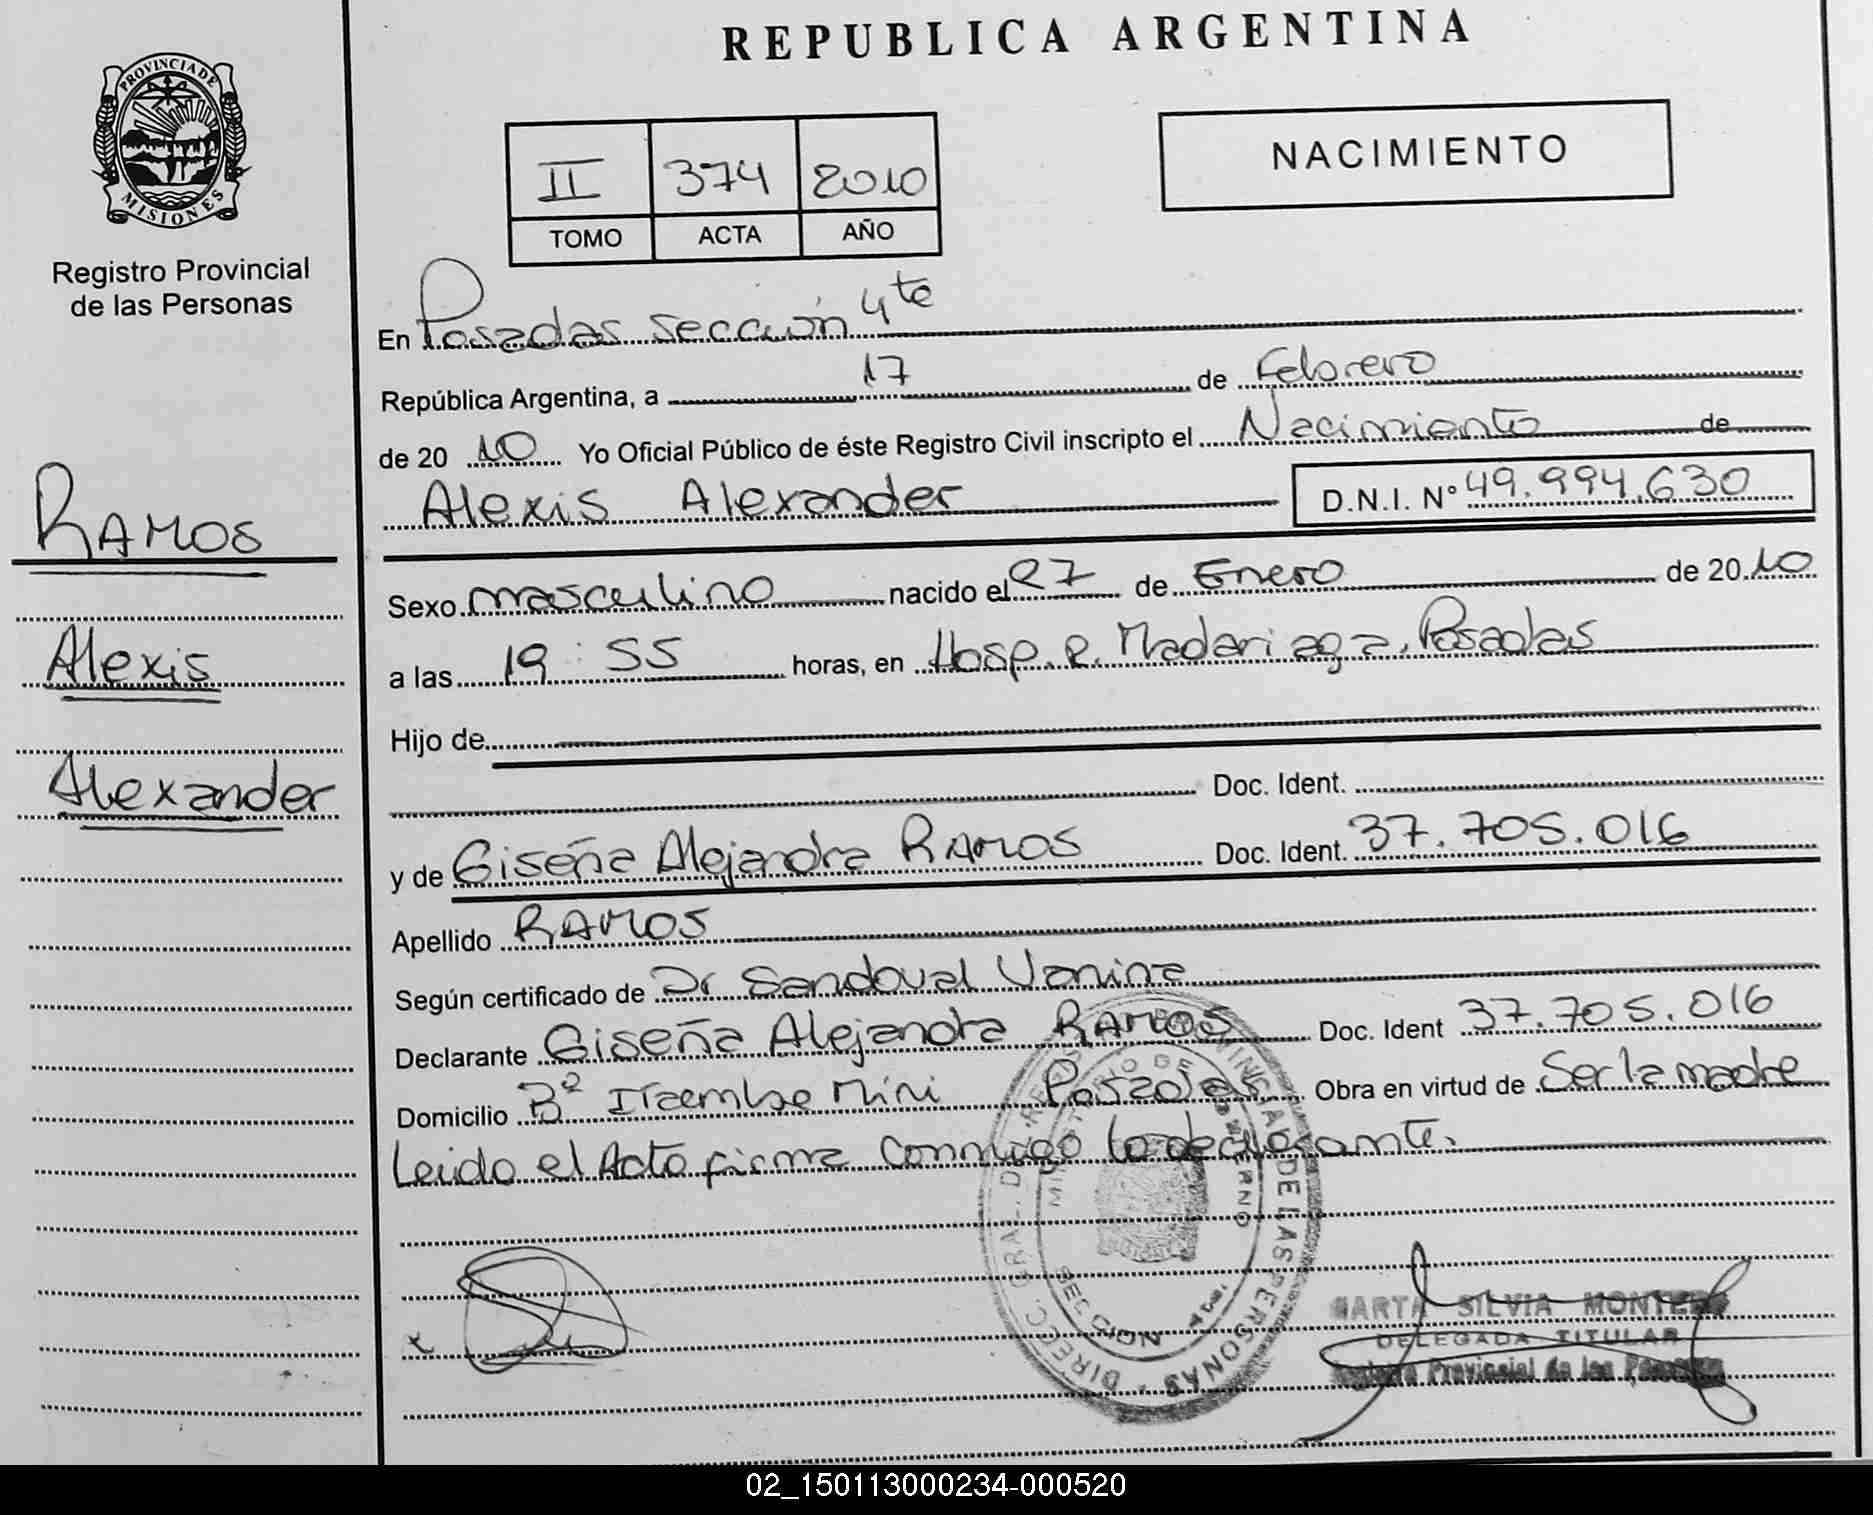 REPUBLICA ARGENTINA
PROVINCIA DE
MISIONES
Registro Provincial
de las Personas
II 374 2010
TOMO ACTA AÑO
NACIMIENTO
En Posadas sección 4ta
República Argentina, a 17 de Febrero
de 20 10 Yo Oficial Público de éste Registro Civil inscripto el Nacimiento de
Alexis Alexander D.N.I. Nº 49.994.630
RAMOS
Alexis
Alexander
Sexo masculino nacido el 27 de Enero de 20 10
a las 19:55 horas, en Hosp. R. Madariaga. Posadas
Hijo de
Doc. Ident.
y de Giseña Alejandra RAMOS Doc. Ident. 37.705.016
Apellido RAMOS
Según certificado de Dr Sandoval Vanina
Declarante Giseña Alejandra RAMOS Doc. Ident 37.705.016
Domicilio Bº Itaembe Mini Posadas Obra en virtud de Ser la madre
Leido el Acta firma conmigo la declarante.
DIREC. GRAL. DEL PROVINCIAL DE LAS PERSONAS
MINISTERIO DE GOBIERNO
SECCION 4ta.
MARTA SILVIA MONTERO
DELEGADA TITULAR
Registro Provincial de las Personas
02_150113000234-000520